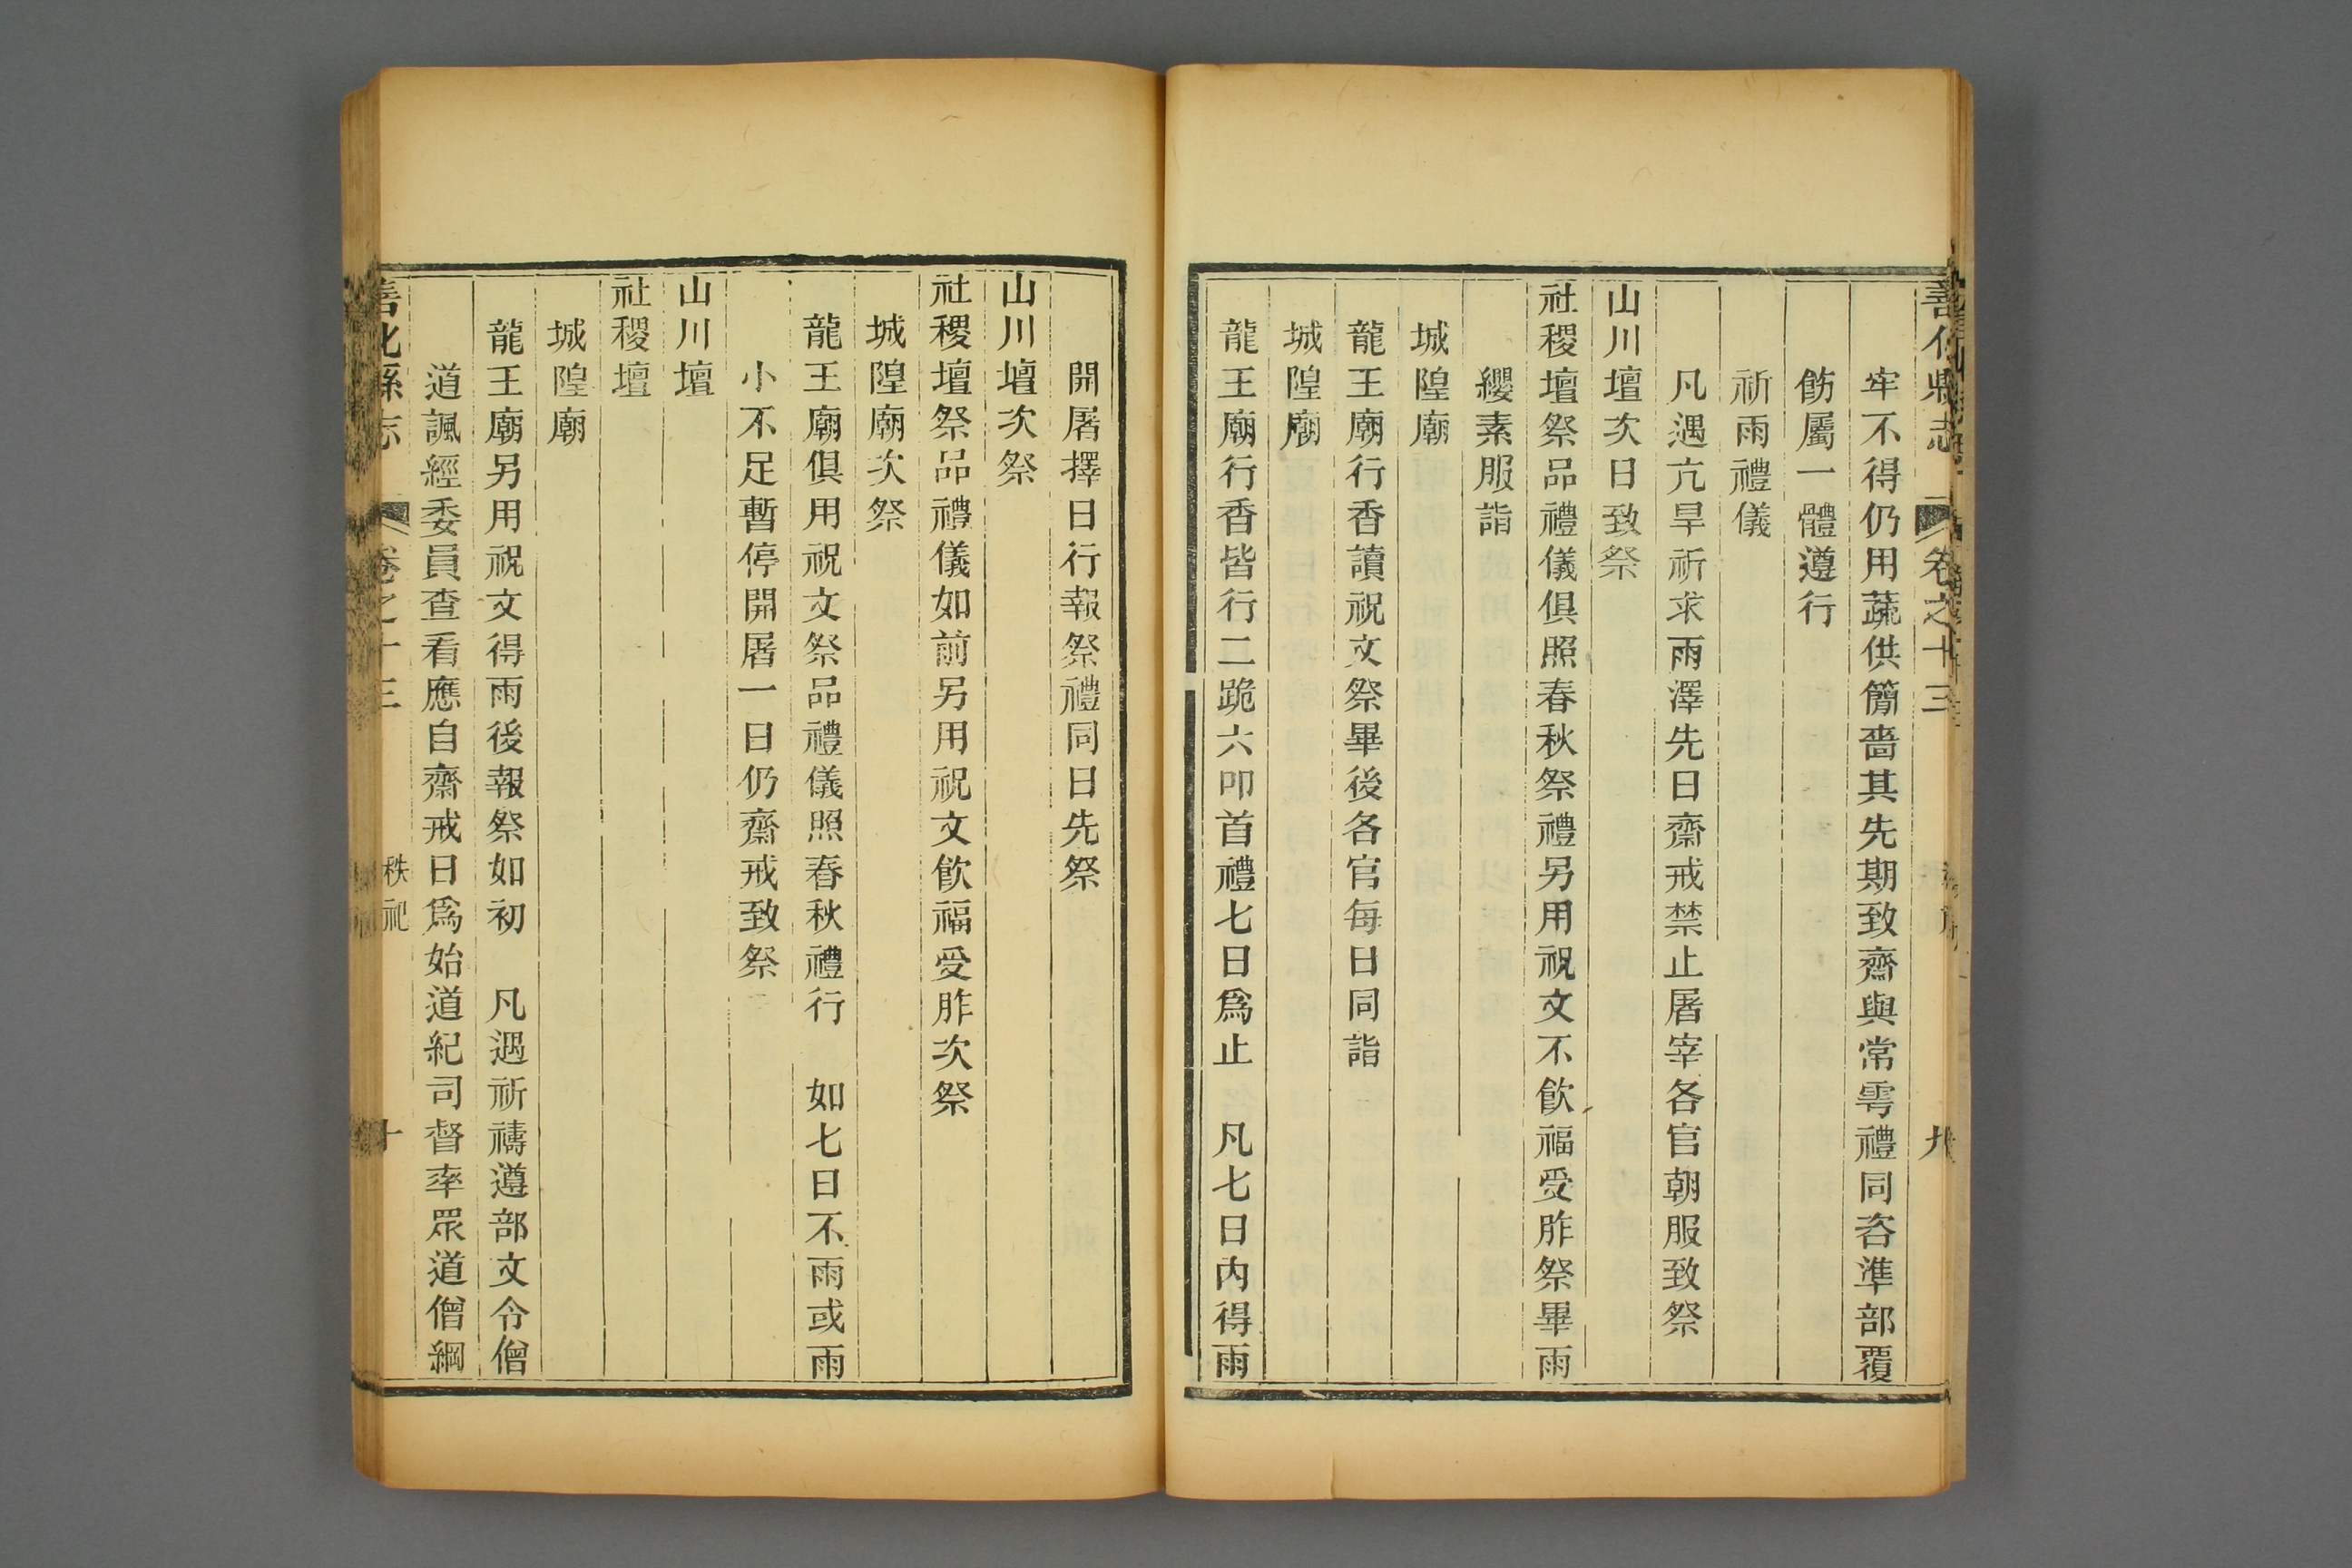 善化縣志 卷之十三 九
牢不得仍用蔬供簡嗇其先期致齋與常雩禮同咨準部覆
飭屬一體遵行
祈雨禮儀
凡遇亢旱祈求雨澤先日齋戒禁止屠宰各官朝服致祭
山川壇次日致祭
社稷壇祭品禮儀俱照春秋祭禮另用祝文不飲福受胙祭畢雨
纓素服詣
城隍廟
龍王廟行香讀祝文祭畢後各官每日同詣
城隍廟
龍王廟行香皆行二跪六叩首禮七日爲止 凡七日內得雨
開屠擇日行報祭禮同日先祭
山川壇次祭
社稷壇祭品禮儀如前另用祝文飲福受胙次祭
城隍廟次祭
龍王廟俱用祝文祭品禮儀照春秋禮行 如七日不雨或雨
小不足暫停開屠一日仍齋戒致祭
山川壇
社稷壇
城隍廟
龍王廟另用祝文得雨後報祭如初 凡遇祈禱遵部文令僧
道諷經委員查看應自齋戒日爲始道紀司督率眾道僧綱
善化縣志 卷之十三 秩祀 十